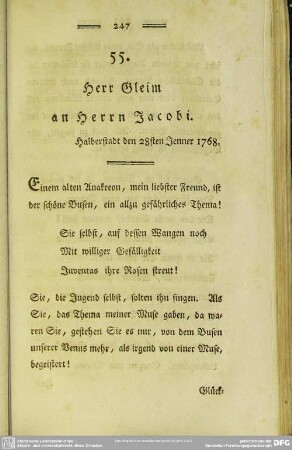 247
55.
Herr Gleim
an Herrn Jacobi.
Halberstadt den 28sten Jenner 1768.
Einem alten Anakreon, mein liebster Freund, ist
der schöne Busen, ein allzu gefährliches Thema!
Sie selbst, auf dessen Wangen noch
Mit williger Gefälligkeit
Juventas ihre Rosen streut!
Sie, die Jugend selbst, solten ihn singen. Als
Sie, das Thema meiner Muse gaben, da wa-
ren Sie, gestehen Sie es nur, von dem Busen
unserer Venus mehr, als irgend von einer Muse,
begeistert!
Glück-
DFG